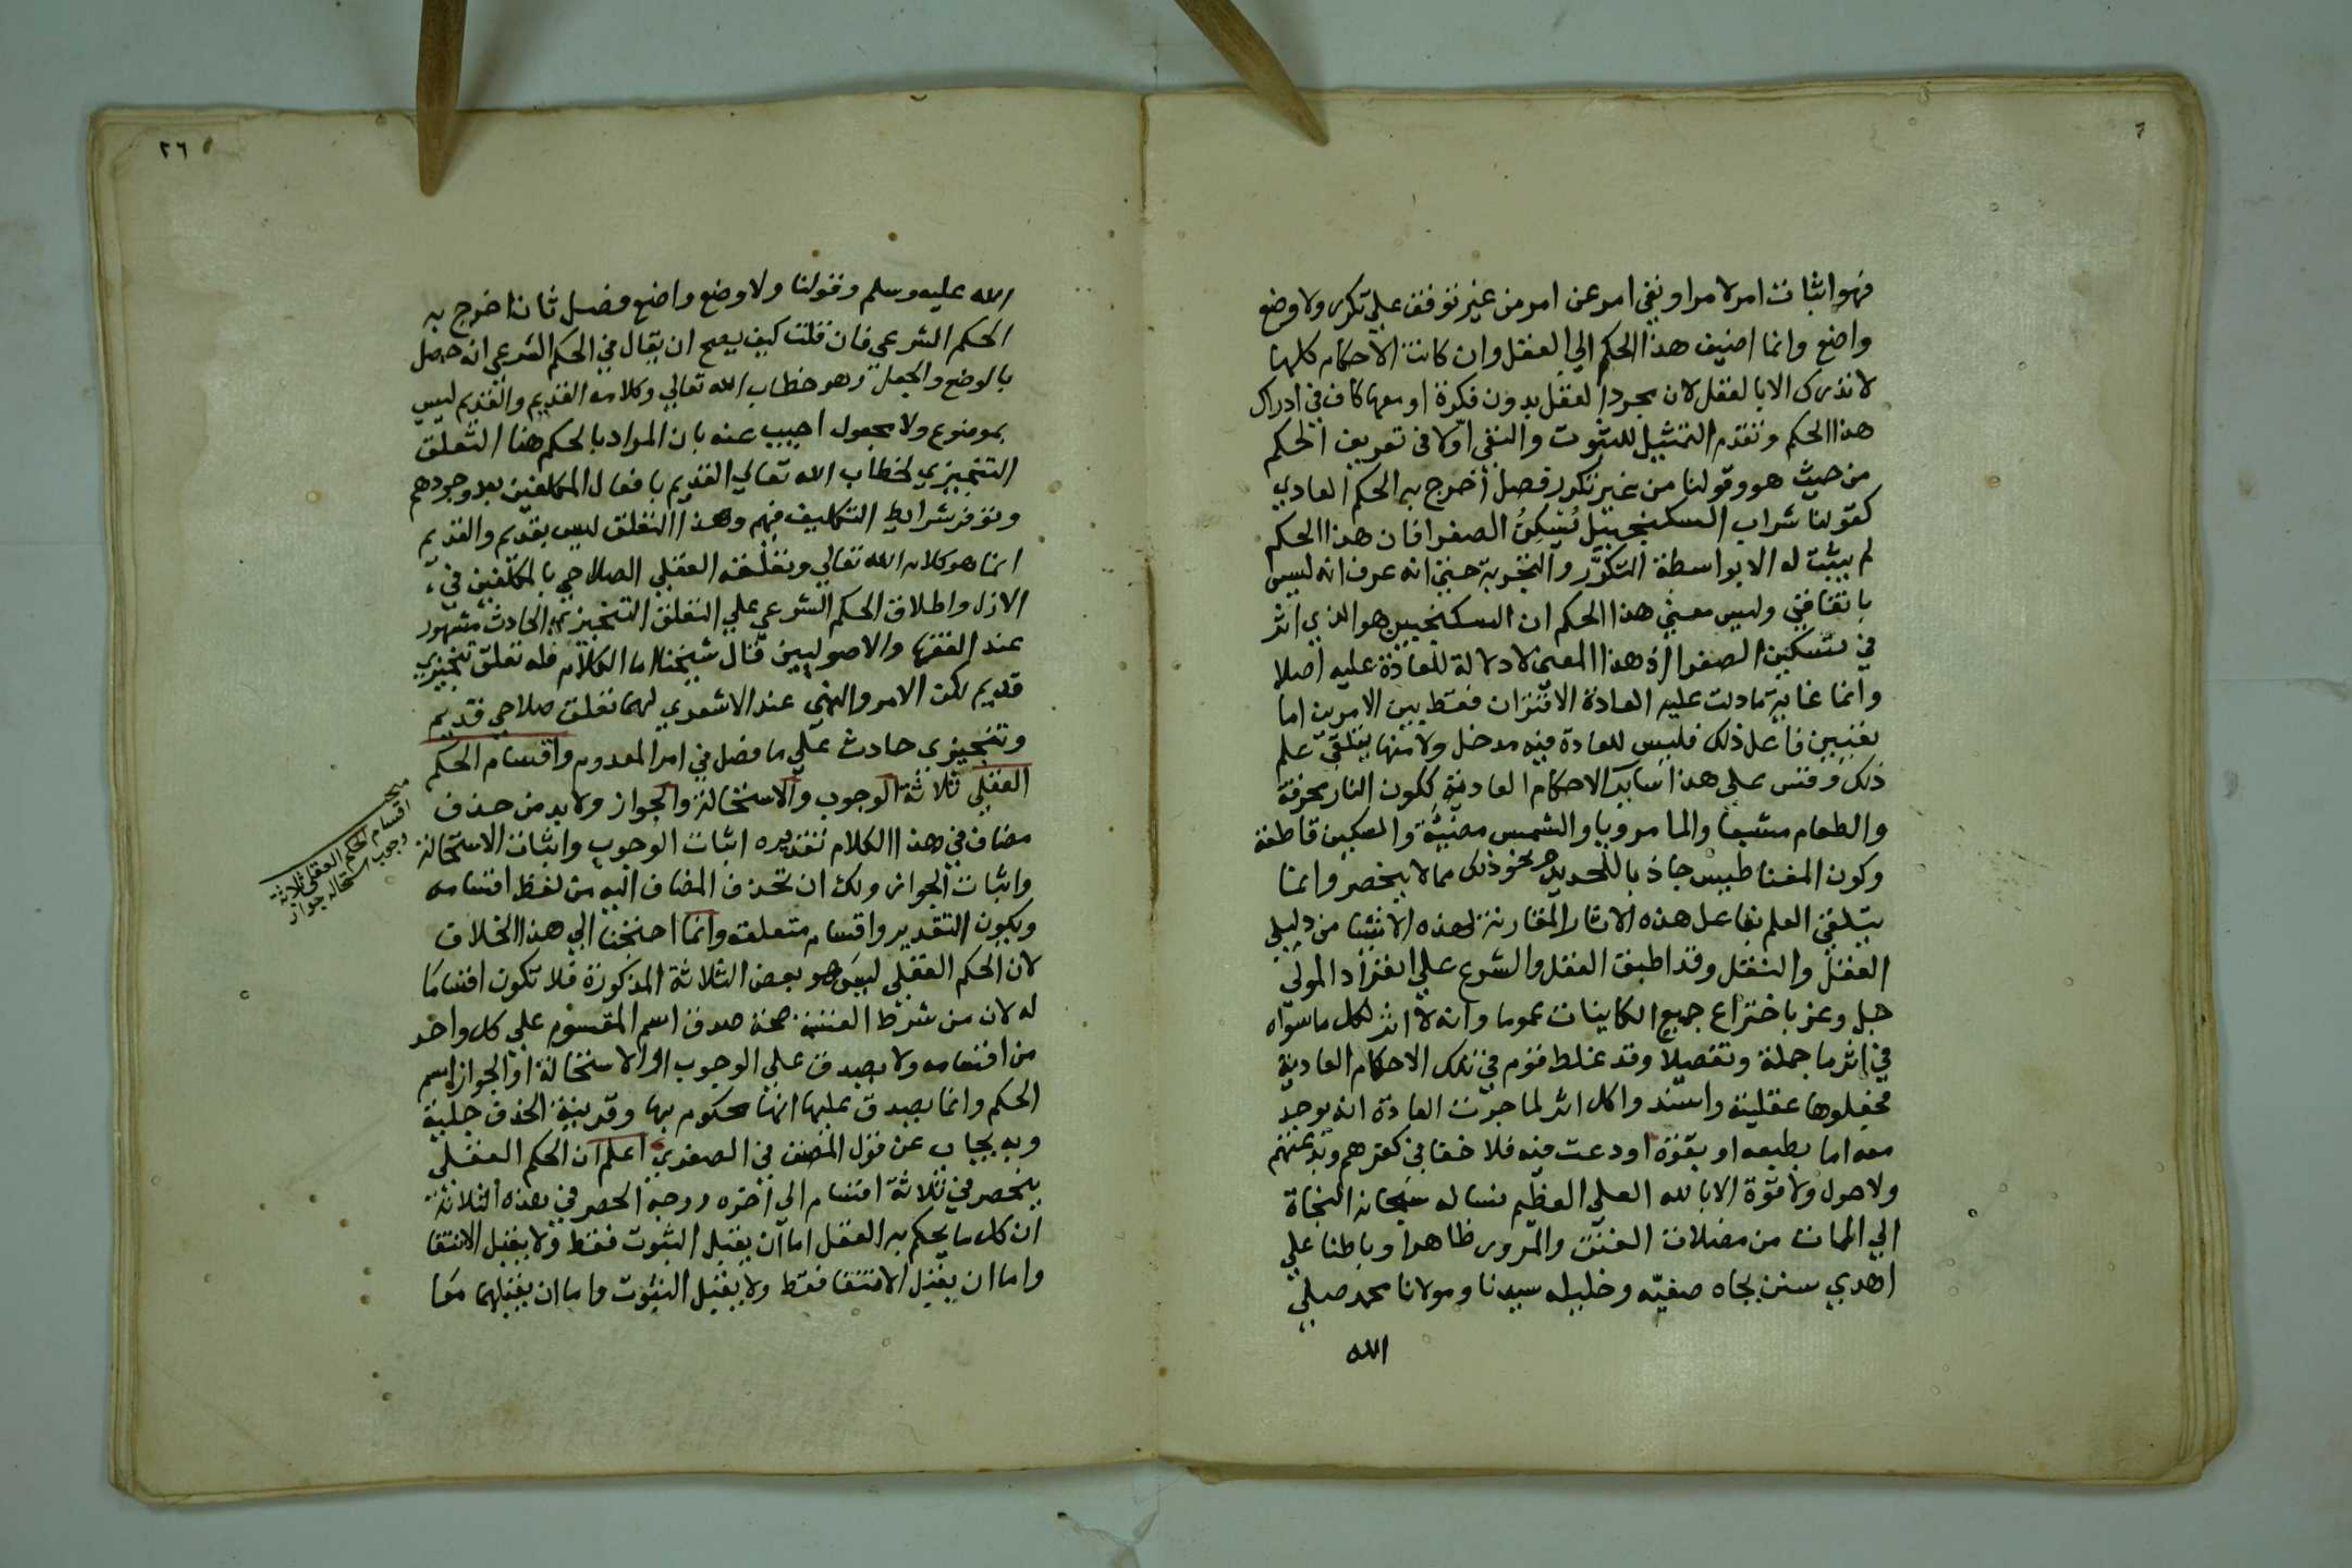 فهو اثبات امر لامر او نفي امر عن امر من غير توقف علي تكرر ولا وضع
واضع وانما اضيف هذا الحكم الي العقل وان كانت الاحكام كلها
لا تدرك الا بالعقل لان مجرد العقل بدون فكرة او معها كاف في ادراك
هذا الحكم وتقدم التمثيل للثبوت والنفي اولا في تعريف الحكم
من حيث هو وقولنا من غير تكرر فصل أخرج به الحكم العادي
كقولنا شراب السكنجبيل يُسَكِنُ الصفرا فان هذا الحكم
لم يثبت له الا بواسطة التكرر والتجربة حتي انه عرف انه ليس
باتفاقي وليس معني هذا الحكم ان السكنجبين هو الذي اثر
في تسكين الصفرا اذ هذا المعني لا دلالة للعادة عليه اصلا
وانما غاية ما دلت عليه العادة الاقتران فقط بين الامرين اما
تعيين فاعل ذلك فليس للعادة فيه مدخل ولا منها يتلقي علم
ذلك وقس علي هذا ساير الاحكام العادية ككون النار محرقة
والطعام مشبعا والما مرويا والشمس مضيئة والسكين قاطعة
وكون المغناطيس جاذبا للحديد ونحو ذلك مما لا ينحصر وانما
يتلقي العلم بفاعل هذه الاثار المقارنة لهذه الاشيا من دليلي
العقل والنقل وقد اطبق العقل والشرع علي انفراد المولي
جل وعز باختراع جميع الكاينات عموما وانه لا اثر لكل ما سواه
في اثر ما جملة وتفصيلا وقد غلط قوم في تلك الاحكام العادية
فجعلوها عقلية واسندوا كل اثر لما جرت العادة انه يوجد
معه اما بطبعه او بقوة اودعت فيه فلا خفا في كفرهم وبدعتهم
ولا حول ولا قوة الا بالله العلي العظيم نساله سبحانه النجاة
الي الممات من مضلات الفتن والمرور ظاهرا وباطنا علي
اهدي سنن بجاه صفيه وخليله سيدنا ومولانا محمد صلي
الله
٢٦
الله عليه وسلم وقولنا ولا وضع واضع فصل ثان اخرج به
الحكم الشرعي فان قلت كيف يصح ان يقال في الحكم الشرعي انه حصل
بالوضع والجعل وهو خطاب الله تعالي وكلامه القديم والقديم ليس
بموضوع ولا مجعول اجيب عنه بان المراد بالحكم هنا التعلق
التنجيزي لخطاب الله تعالي القديم بافعال المكلفين بعد وجودهم
وتوفر شرايط التكليف فيهم وهذا التعلق ليس بقديم والقديم
انما هو كلام الله تعالي وتعلقه العقلي الصلاحي بالمكلفين في
الازل واطلاق الحكم الشرعي علي التعلق التنجيزي الحادث مشهور
عند الفقها والاصوليين قال شيخنا اما الكلام فله تعلق تنجيزي
قديم لكن الامر والنهي عند الاشعري لهما تعلق صلاحي قديم
وتنجيزي حادث علي ما فصل في امر المعدوم واقسام الحكم
العقلي ثلاثة الوجوب والاستحالة والجواز ولا بد من حذف
مضاف في هذا الكلام تقديره اثبات الوجوب واثبات الاستحالة
واثبات الجواز ولك ان تحذف المضاف اليه من لفظ اقسامه
ويكون التقدير واقسام متعلقه وانما احتجنا الي هذا الخلاف
لان الحكم العقلي ليس هو بعض الثلاثة المذكورة فلا تكون اقساما
له لان من شرط القسمة صحة صدق اسم المقسوم علي كل واحد
من اقسامه ولا يصدق علي الوجوب او الاستحالة او الجواز اسم
الحكم وانما يصدق عليها انها محكوم بها وقرينة الحذف جلية
وبه يجاب عن قول المصنف في الصغري اعلم ان الحكم العقلي
ينحصر في ثلاثة اقسام الي اخره ووجه الحصر في هذه الثلاثة
ان كل ما يحكم به العقل اما ان يقبل الثبوت فقط ولا يقبل الانتفا
واما ان يقبل الانتفا فقط ولا يقبل الثبوت واما ان يقبلهما معا
اقسام الحكم العقلي ثلاثة
وجوب استحاله جواز